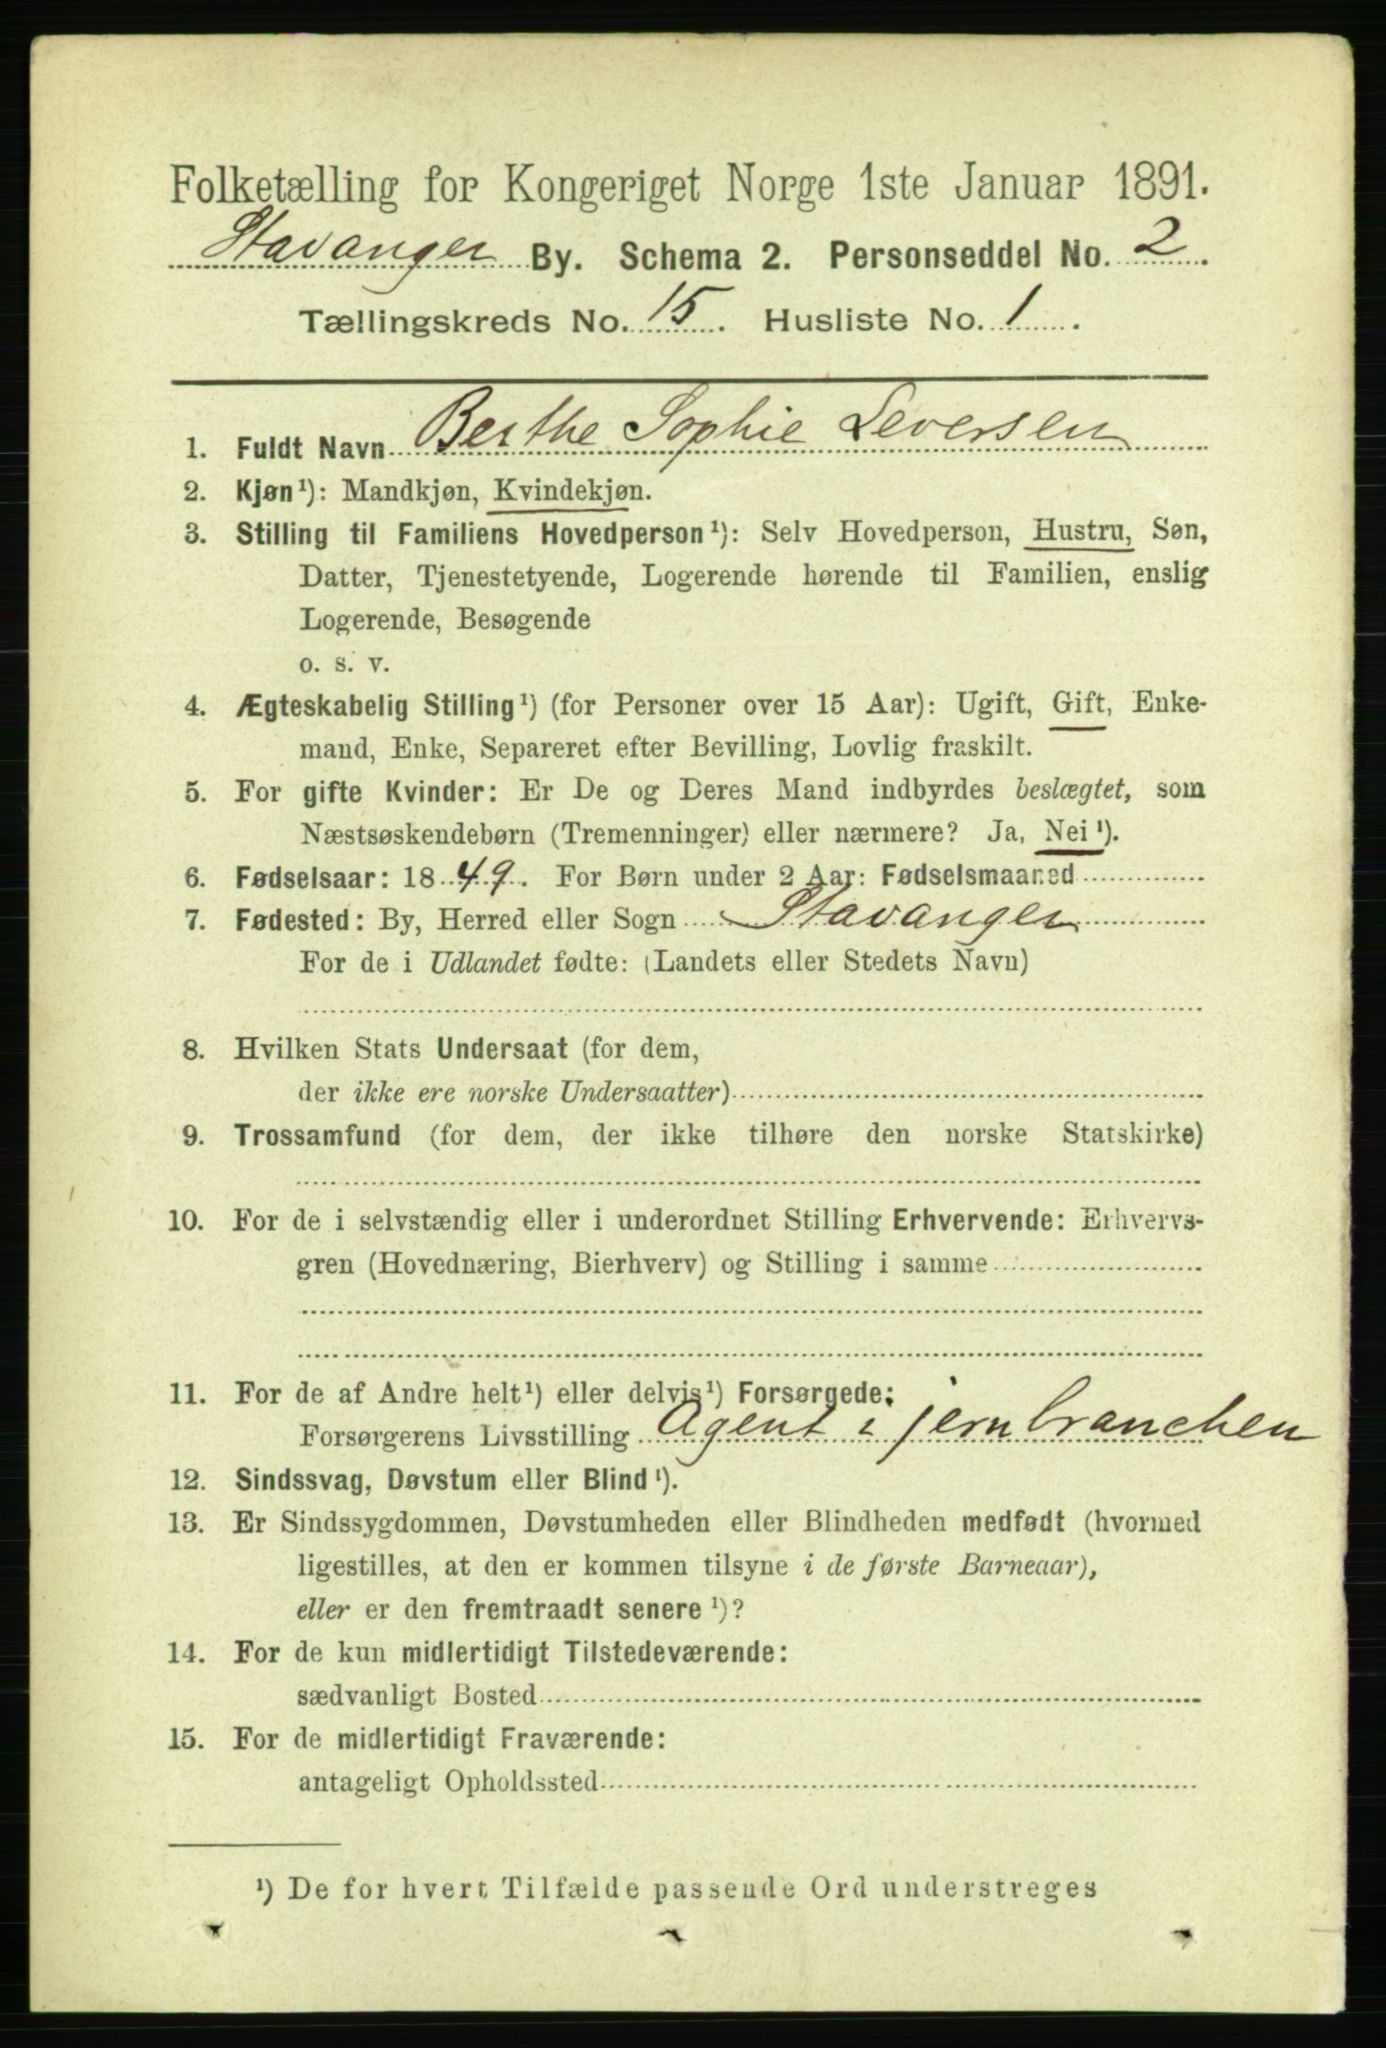 Folketælling for Kongeriget Norge 1ste Januar 1891.
Stavanger By. Schema 2. Personseddel No. 2.
Tællingskreds No. 15. Husliste No. 1.
1. Fuldt Navn Berthe Sophie Seversen
2. Kjøn¹): Mandkjøn, Kvindekjøn.
3. Stilling til Familiens Hovedperson¹): Selv Hovedperson, Hustru, Søn,
Datter, Tjenestetyende, Logerende hørende til Familien, enslig
Logerende, Besøgende
o. s. v.
4. Ægteskabelig Stilling¹) (for Personer over 15 Aar): Ugift, Gift, Enke-
mand, Enke, Separeret efter Bevilling, Lovlig fraskilt.
5. For gifte Kvinder: Er De og Deres Mand indbyrdes beslægtet, som
Næstsøskendebørn (Tremenninger) eller nærmere? Ja, Nei¹).
6. Fødselsaar: 1849. For Børn under 2 Aar: Fødselsmaaned
7. Fødested: By, Herred eller Sogn Stavanger
For de i Udlandet fødte: (Landets eller Stedets Navn)
8. Hvilken Stats Undersaat (for dem,
der ikke ere norske Undersaatter)
9. Trossamfund (for dem, der ikke tilhøre den norske Statskirke)
10. For de i selvstændig eller i underordnet Stilling Erhvervende: Erhvervs-
gren (Hovednæring, Bierhverv) og Stilling i samme
11. For de af Andre helt¹) eller delvis¹) Forsørgede:
Forsørgerens Livsstilling Agent i jernbranchen
12. Sindssvag, Døvstum eller Blind¹).
13. Er Sindssygdommen, Døvstumheden eller Blindheden medfødt (hvormed
ligestilles, at den er kommen tilsyne i de første Barneaar),
eller er den fremtraadt senere¹)?
14. For de kun midlertidigt Tilstedeværende:
sædvanligt Bosted
15. For de midlertidigt Fraværende:
antageligt Opholdssted
¹) De for hvert Tilfælde passende Ord understreges